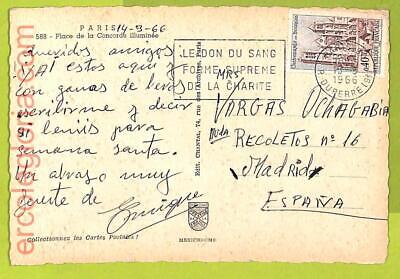 PARIS 14-3-66
588 - Place de la Concorde illuminée
queridos amigos
YA! estoy aqui y
con ganas de leros
escribirme y decir
si venis para
semana santa.
Un abrazo muy
fuerte de
Enrique
Collectionnez les Cartes Postales !
LE DON DU SANG
FORME SUPREME
DE LA CHARITE
1966
0,40
MRS
VARGAS OCHAGABIA
Avda RECOLETOS nº 16
Madrid
ESPAÑA
Edit. CHANTAL, 74, rue des Archives, Paris
MEXICHROME
ercolegloria.com